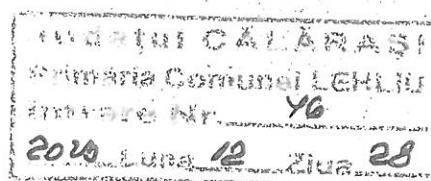 Județul CĂLĂRAȘI
Primăria Comunei LEHLIU
Intrare Nr. 46
Luna 12 Ziua 28